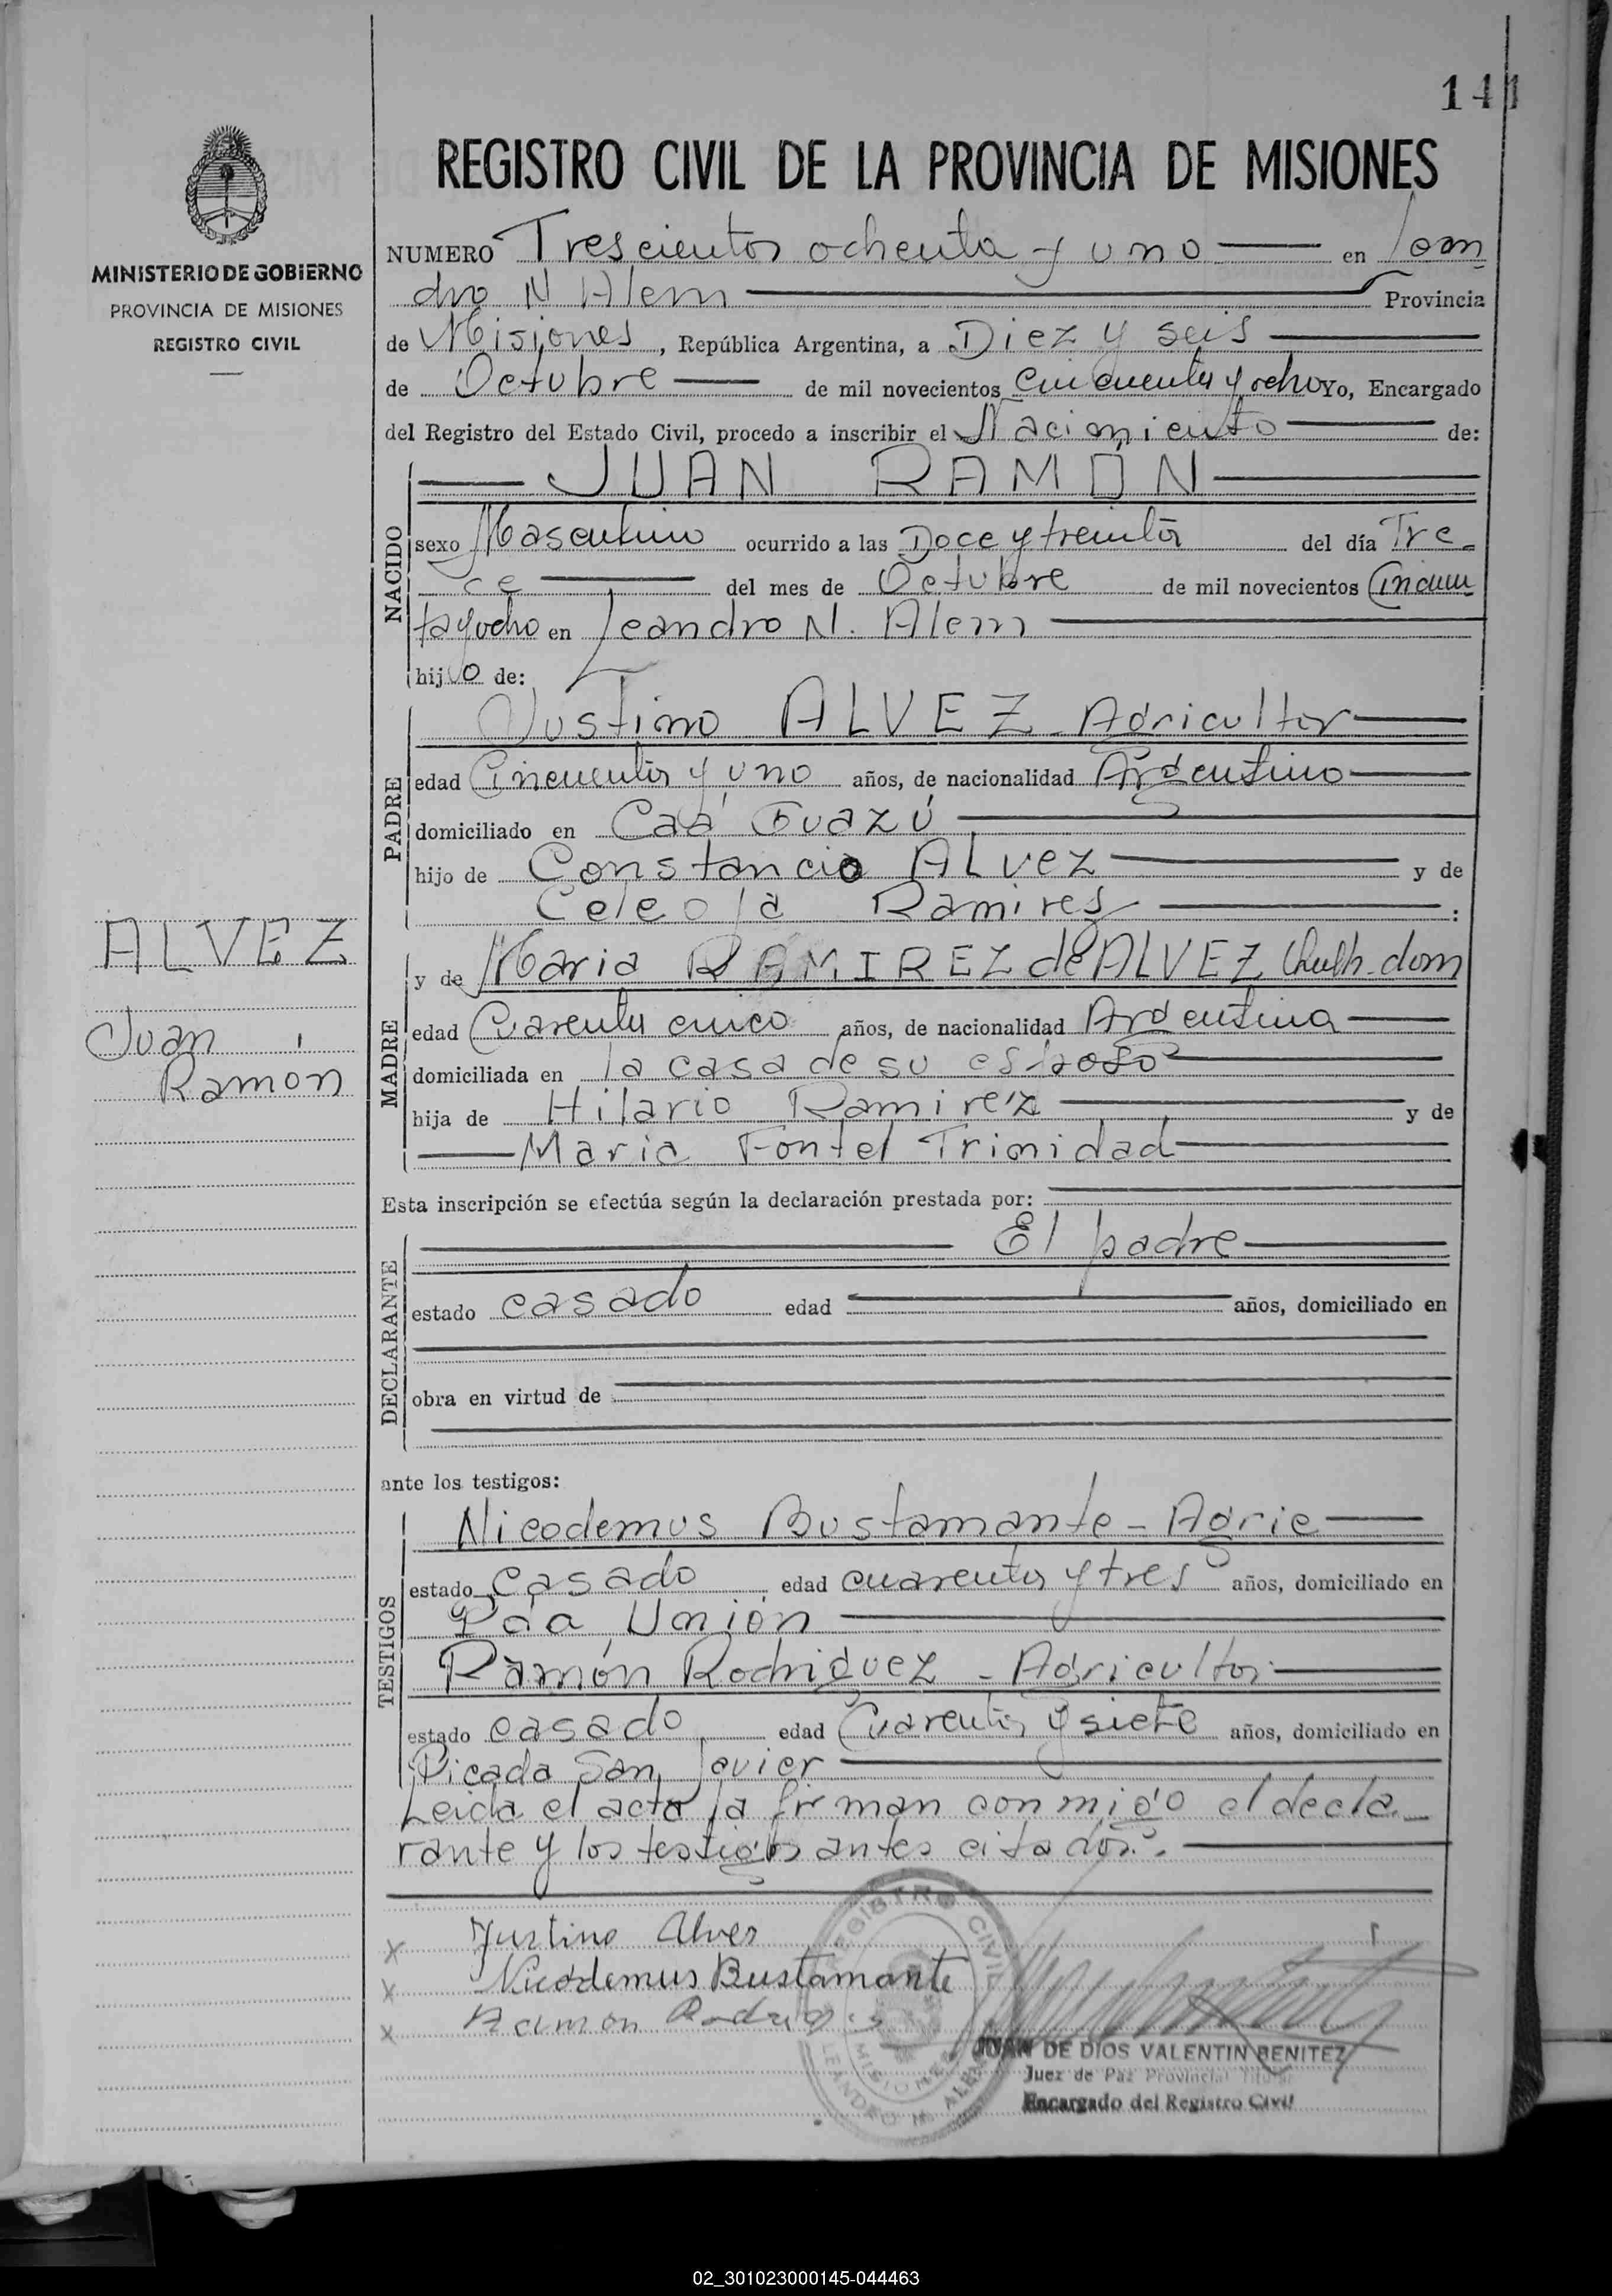 141
MINISTERIO DE GOBIERNO
PROVINCIA DE MISIONES
REGISTRO CIVIL
ALVEZ
Juan
Ramón
REGISTRO CIVIL DE LA PROVINCIA DE MISIONES
NUMERO Trescientos ochenta y uno en Lean
dro N Alem Provincia
de Misiones, República Argentina, a Diez y seis
de Octubre de mil novecientos cincuenta y ocho Yo, Encargado
del Registro del Estado Civil, procedo a inscribir el Nacimiento de:
JUAN RAMÓN
NACIDO
sexo Masculino ocurrido a las Doce y treinta del día Tre-
ce del mes de Octubre de mil novecientos Cincuen
tayocho en Leandro N. Alem
hijo de:
PADRE
Justino ALVEZ - Agricultor
edad Cincuenta y uno años, de nacionalidad Argentino
domiciliado en Caá Guazú
hijo de Constancio Alvez y de
Ramires :
MADRE
y de Maria RAMIREZ de ALVEZ dom
edad Cuarenta cinco años, de nacionalidad Argentina
domiciliada en la casa de su esposo
hija de Hilario Ramirez y de
Maria Fontel Trinidad
Esta inscripción se efectúa según la declaración prestada por:
DECLARANTE
El padre
estado casado edad años, domiciliado en
obra en virtud de
ante los testigos:
TESTIGOS
Nicodemus Bustamante - Agric
estado casado edad cuarenta y tres años, domiciliado en
Pda Unión
Ramón Rodriguez - Agricultor
estado casado edad Cuarenta y siete años, domiciliado en
Picada San Javier
Leida el acta la firman conmigo el decla-
rante y los testigos antes citados.
x Justino Alvez
x Nicodemus Bustamante
x Ramon
REGISTRO CIVIL
MISIONES
LEANDRO N. ALEM
JUAN DE DIOS VALENTIN BENITEZ
Juez de Paz Provincial Titular
Encargado del Registro Civil
02_301023000145-044463